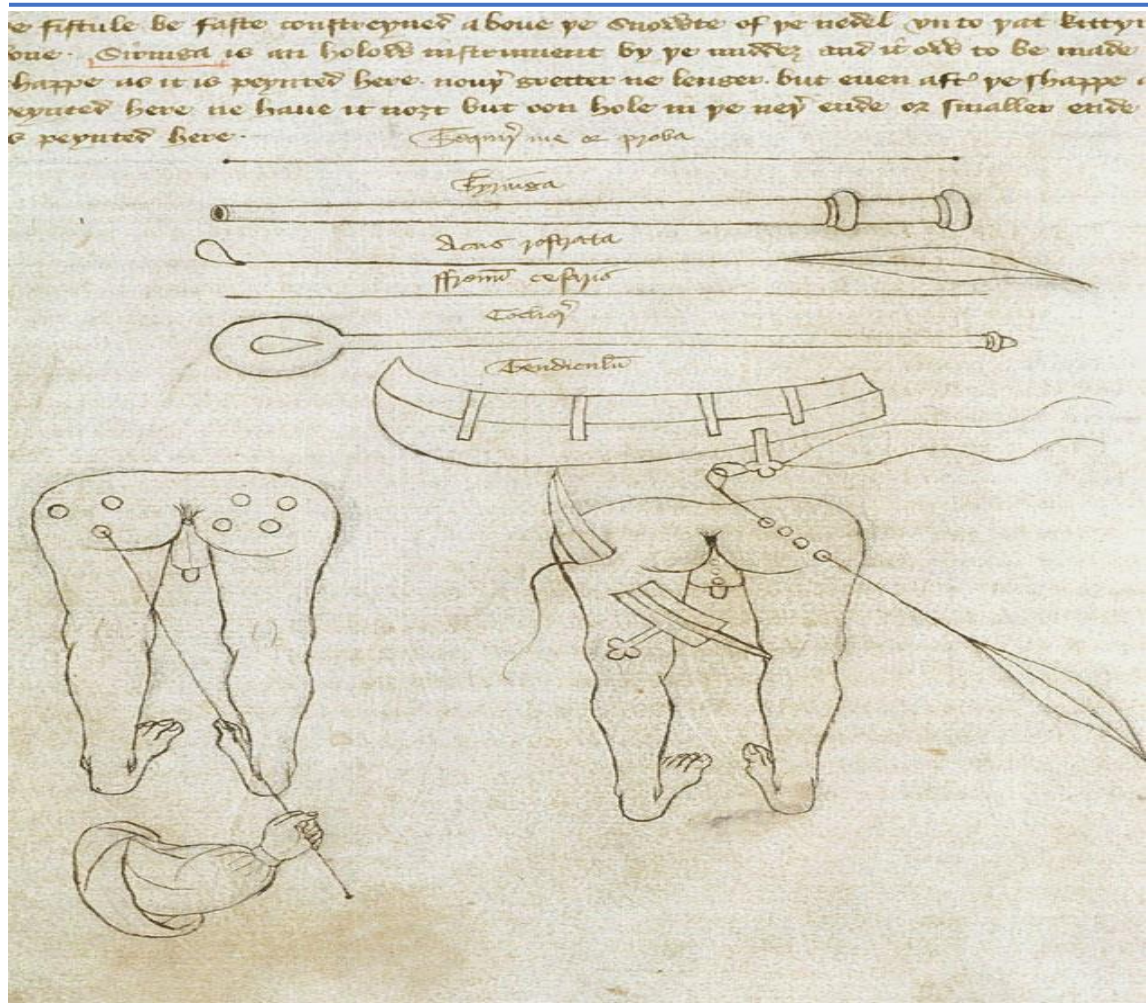 e fistule be faste constreyned aboue þe snowte of þe nedel vn to þat kittyn
oue. Siringa is an holow instrument by þe middeȝ and it ow to be made
shappe as it is peynted here. nouþ gretter ne lenger. but euen aftᵉ þe shappe a
eynted here ne haue it noȝt but von hole in þe neþ ende or smaller ende
s peynted here.
me or proba
Syringa
Acus rostrata
ffrenū cesaris
Tendiculū